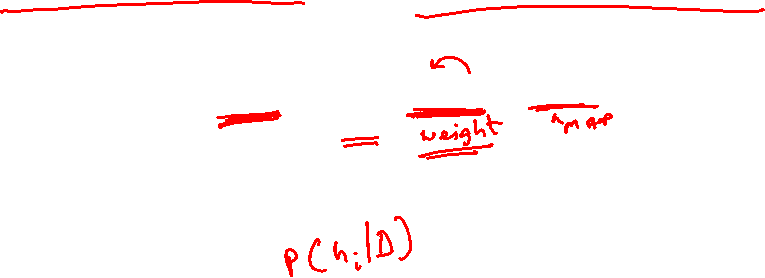 =
weight
hMAP
P(hi|D)